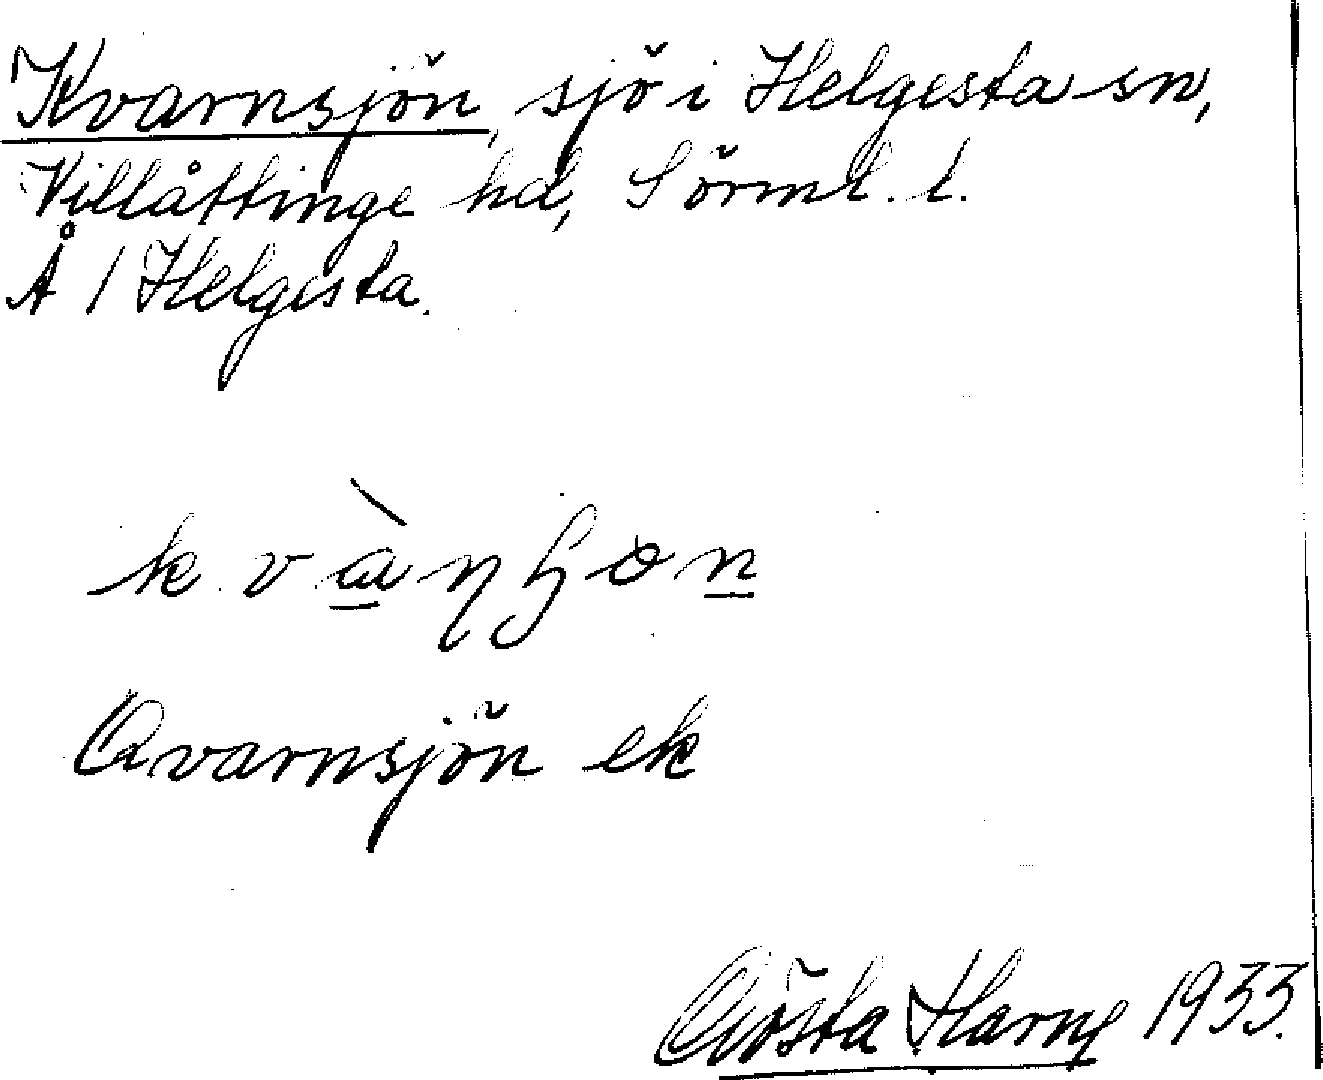 Kvarnsjön, sjö i Helgesta sn,
Villåttinge hd, Sörml. l.
Å / Helgesta.
Qvarnsjön ek
Gösta Harne 1933.